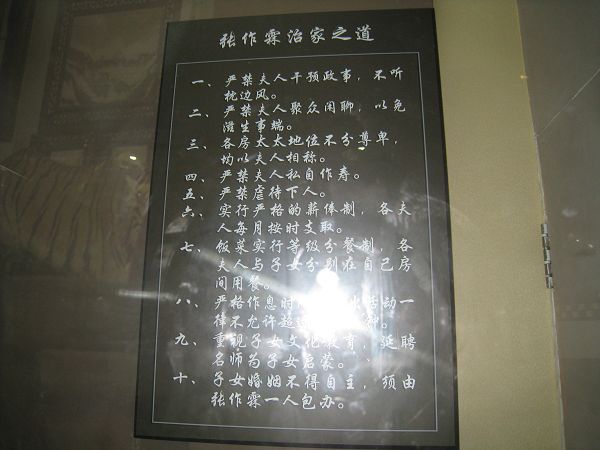 张作霖治家之道
一、严禁夫人干预政事，不听
枕边风。
二、严禁夫人聚众闲聊，以免
滋生事端。
三、各房太太地位不分尊卑，
均以夫人相称。
四、严禁夫人私自作寿。
五、严禁虐待下人。
六、实行严格的薪俸制，各夫
人每月按时支取。
七、饭菜实行等级分餐制，各
夫人与子女分别在自己房
间用餐。
八、严格作息时 活动一
律不允许超 钟。
九、重视子女文化教育，延聘
名师为子女启蒙。
十、子女婚姻不得自主，须由
张作霖一人包办。